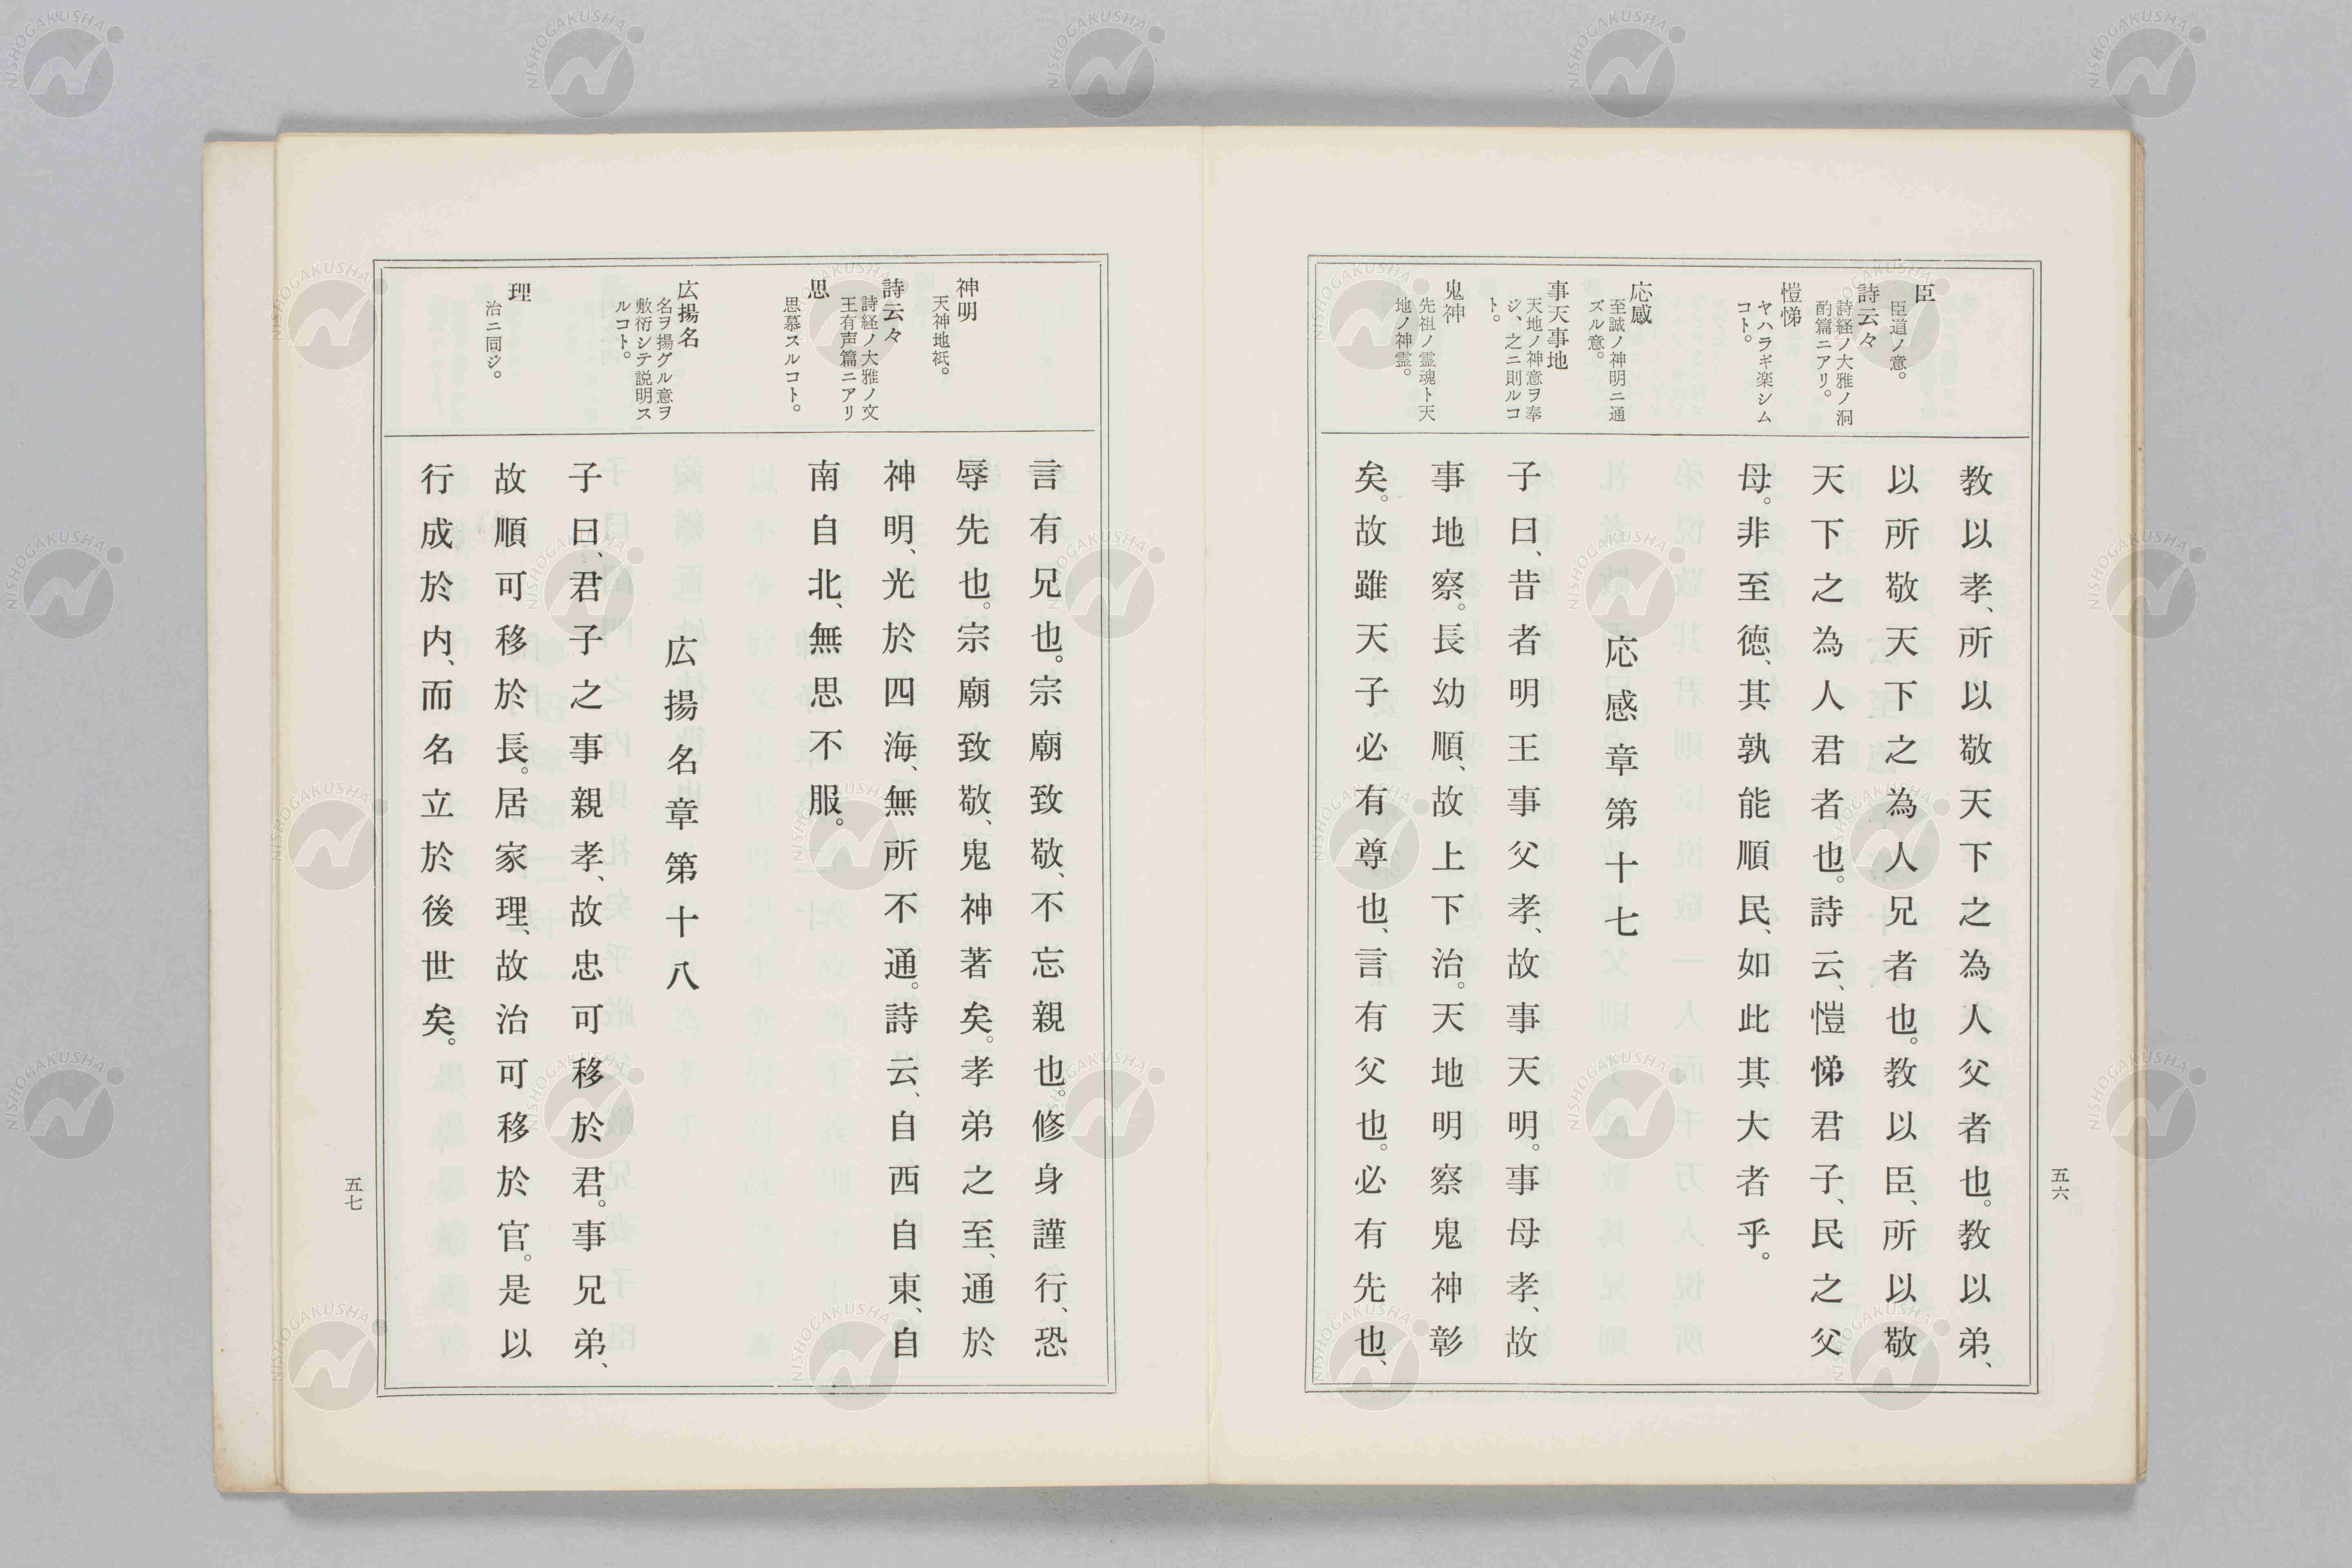 臣
臣道ノ意。
詩云々
詩経ノ大雅ノ泂
酌篇ニアリ。
愷悌
ヤハラギ楽シム
コト。
応感
至誠ノ神明ニ通
ズル意。
事天事地
天地ノ神意ヲ奉
ジ、之ニ則ルコ
ト。
鬼神
先祖ノ霊魂ト天
地ノ神霊。
教以孝、所以敬天下之為人父者也。教以弟、
以所敬天下之為人兄者也。教以臣、所以敬
天下之為人君者也。詩云、愷悌君子、民之父
母。非至徳、其孰能順民、如此其大者乎。
応感章第十七
子曰、昔者明王事父孝、故事天明。事母孝、故
事地察。長幼順、故上下治。天地明察鬼神彰
矣。故雖天子必有尊也、言有父也。必有先也、
五六
神明
天神地祇。
詩云々
詩経ノ大雅ノ文
王有声篇ニアリ
思
思慕スルコト。
広揚名
名ヲ揚グル意ヲ
敷衍シテ説明ス
ルコト。
理
治ニ同ジ。
言有兄也。宗廟致敬、不忘親也。修身謹行、恐
辱先也。宗廟致敬、鬼神著矣。孝弟之至、通於
神明、光於四海、無所不通。詩云、自西自東、自
南自北、無思不服。
広揚名章第十八
子曰、君子之事親孝、故忠可移於君。事兄弟、
故順可移於長。居家理、故治可移於官。是以
行成於内、而名立於後世矣。
五七
NISHOGAKUSHA